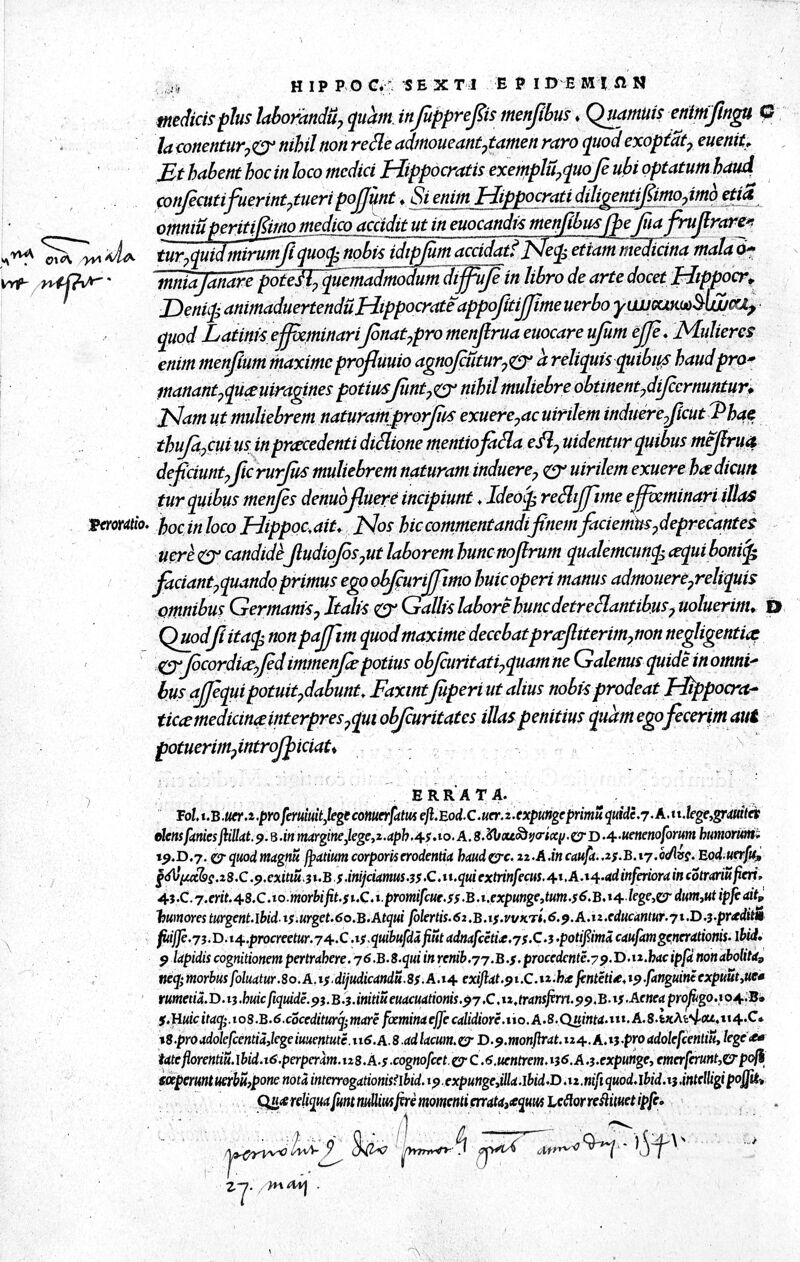 HIPPOC. SEXTI EPIDEMIΩN
medicis plus laborandũ, quàm in suppressis mensibus. Quamuis enim singu C
la conentur, & nihil non recte admoueant, tamen raro quod exoptãt, euenit.
Et habent hoc in loco medici Hippocratis exemplũ, quo se ubi optatum haud
consecuti fuerint, tueri possunt. Si enim Hippocrati diligentissimo, imò etiã
omniũ peritissimo medico accidit ut in euocandis mensibus spe sua frustrare-
tur, quid mirum si quoq; nobis idipsum accidat? Neq; etiam medicina mala o-
oĩa mala
mnia sanare potest, quemadmodum diffuse in libro de arte docet Hippocr.
Deniq; animaduertendũ Hippocratẽ appositissime uerbo γυναικωθῆναι,
quod Latinis effœminari sonat, pro menstrua euocare usum esse. Mulieres
enim mensium maxime profluuio agnoscũtur, & à reliquis quibus haud pro-
manant, quæ uiragines potius sunt, & nihil muliebre obtinent, discernuntur.
Nam ut muliebrem naturam prorsus exuere, ac uirilem induere, sicut Phae
thusa, cuius in præcedenti dictione mentio facta est, uidentur quibus mẽstrua
deficiunt, sic rursus muliebrem naturam induere, & uirilem exuere hæ dicun
tur quibus menses denuò fluere incipiunt. Ideoq; rectissime effœminari illas
Peroratio. hoc in loco Hippoc. ait. Nos hic commentandi finem faciemus, deprecantes
uerè & candidè studiosos, ut laborem hunc nostrum qualemcunq; æqui boniq;
faciant, quando primus ego obscurissimo huic operi manus admouere, reliquis
omnibus Germanis, Italis & Gallis laborẽ hunc detrectantibus, uoluerim. D
Quod si itaq; non passim quod maxime decebat præstiterim, non negligentiæ
& socordiæ, sed immensæ potius obscuritati, quam ne Galenus quidẽ in omni-
bus assequi potuit, dabunt. Faxint superi ut alius nobis prodeat Hippocra-
ticæ medicinæ interpres, qui obscuritates illas penitius quàm ego fecerim aut
potuerim, introspiciat.
ERRATA.
Fol. 1. B. uer. 2. pro seruiuit, lege conuersatus est. Eod. C. uer. 2. expunge primũ quidẽ. 7. A. 11. lege, grauiter
olens sanies stillat. 9. B. in margine, lege, 2. aph. 45. 10. A. 8. & D. 4. uenenosorum humorum.
19. D. 7. & quod magnũ spatium corporis erodentia haud &c. 22. A. in causa. 25. B. 17. Eod. uersu,
28. C. 9. exitiũ. 31. B. 5. inijciamus. 35. C. 11. qui extrinsecus. 41. A. 14. ad inferiora in cõtrariũ fieri.
43. C. 7. erit. 48. C. 10. morbi fit. 51. C. 1. promiscue. 55. B. 1. expunge, tum. 56. B. 14. lege, & dum, ut ipse ait,
humores turgent. Ibid. 15. urget. 60. B. Atqui solertis. 62. B. 15. νυκτί. 6. 9. A. 12. educantur. 71. D. 3. præditũ
fuisse. 73. D. 14. procreetur. 74. C. 15. quibusdã fiũt adnascẽtiæ. 75. C. 3. potissimã causam generationis. Ibid.
9 lapidis cognitionem pertrahere. 76. B. 8. qui in renib. 77. B. 5. procedentẽ. 79. D. 12. hac ipsa non abolita,
neq; morbus soluatur. 80. A. 15. dijudicandũ. 85. A. 14 existat. 91. C. 12. hæ sentẽtiæ. 19. sanguinẽ expuũt, ue-
rumetiã. D. 13. huic siquidẽ. 93. B. 3. initiũ euacuationis. 97. C. 12. transferri. 99. B. 15. Aenea profugo. 104. B.
5. Huic itaq;. 108. B. 6. cõcediturq; marẽ fœmina esse calidiorẽ. 110. A. 8. Quinta. 111. A. 8. ἐκλέψαι. 114. C.
18. pro adolescentiã, lege iuuentutẽ. 116. A. 8. ad lacum. & D. 9. monstrat. 124. A. 13. pro adolescentiũ, lege æ-
tate florentiũ. Ibid. 16. perperàm. 128. A. 5. cognoscet. & C. 6. uentrem. 136. A. 3. expunge, emerserunt, & post
cœperunt uerbũ, pone notã interrogationis? Ibid. 19. expunge, illa. Ibid. D. 12. nisi quod. Ibid. 13. intelligi possit.
Quæ reliqua sunt nullius ferè momenti errata, æquus Lector restituet ipse.
anno dñi. 1541.
27. maij.